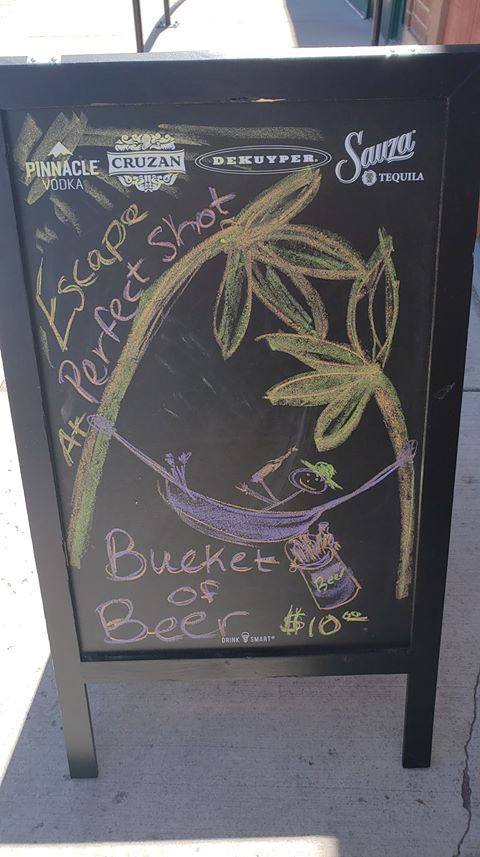 PINNACLE
VODKA
CRUZAN
DEKUYPER®
Sauza
TEQUILA
Escape
At Perfect Shot
Bucket
of
Beer
Beer
$10.00
DRINK SMART®